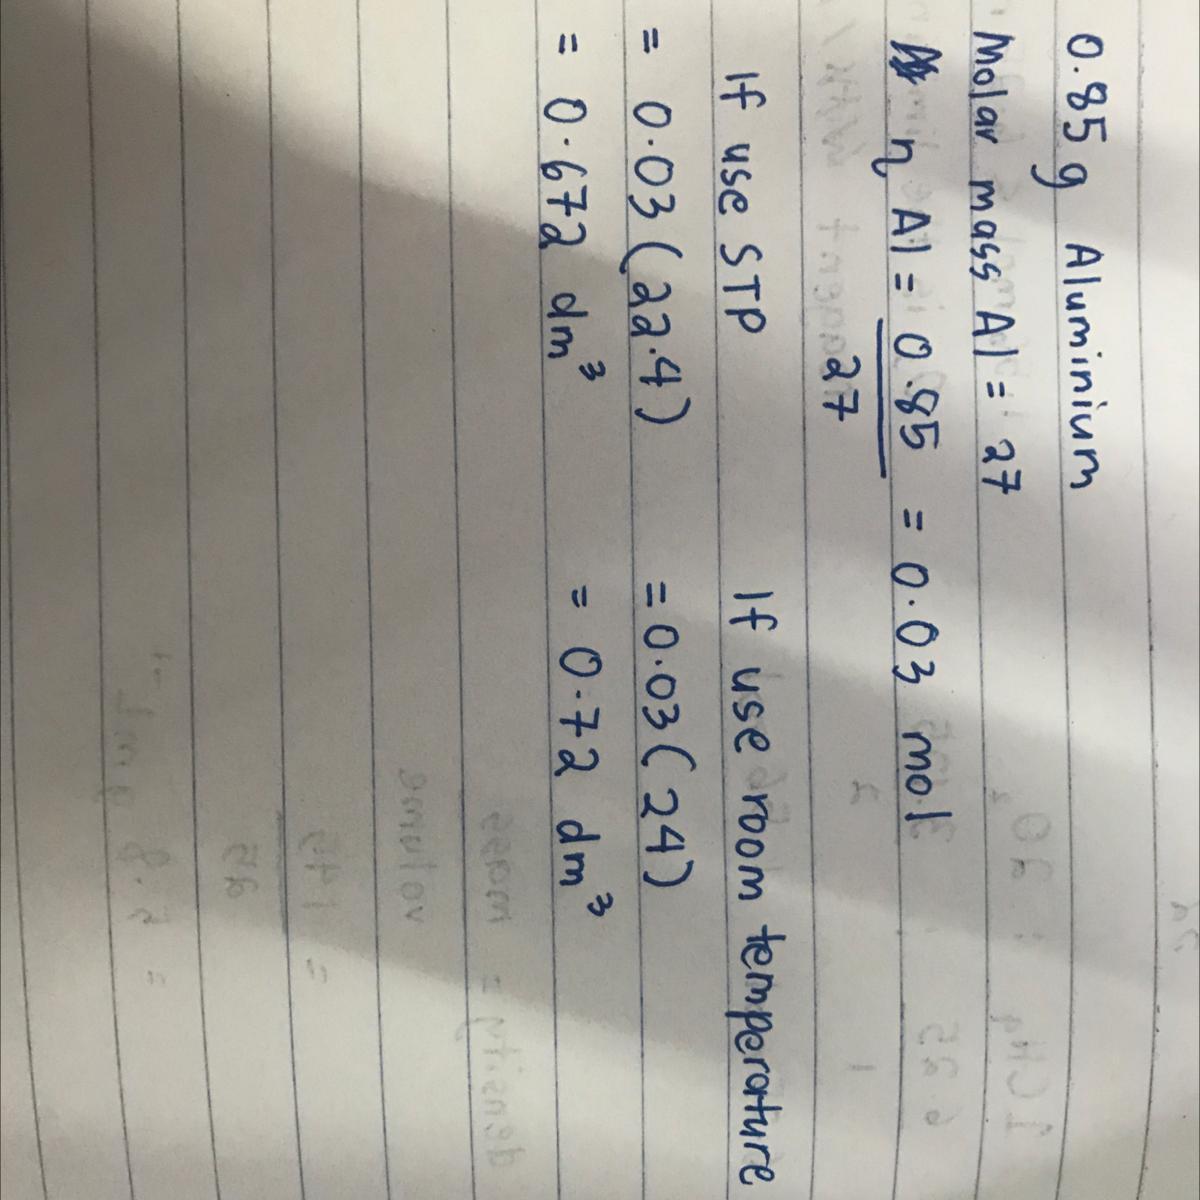 0.85 g Aluminium
Molar mass Al = 27
n Al = 0.85 = 0.03 mol
27
If use STP If use room temperature
= 0.03 (22.4) = 0.03 (24)
= 0.672 dm³ = 0.72 dm³